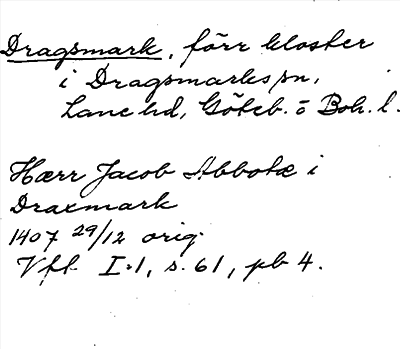 Dragsmark, förr kloster
i Dragsmarks sn,
Lane hd, Göteb. o Boh. l.
Hærr Jacob Abbotæ i
Draxmark
1407 29/12 orig.
Vfl. I:1, s. 61, pb 4.